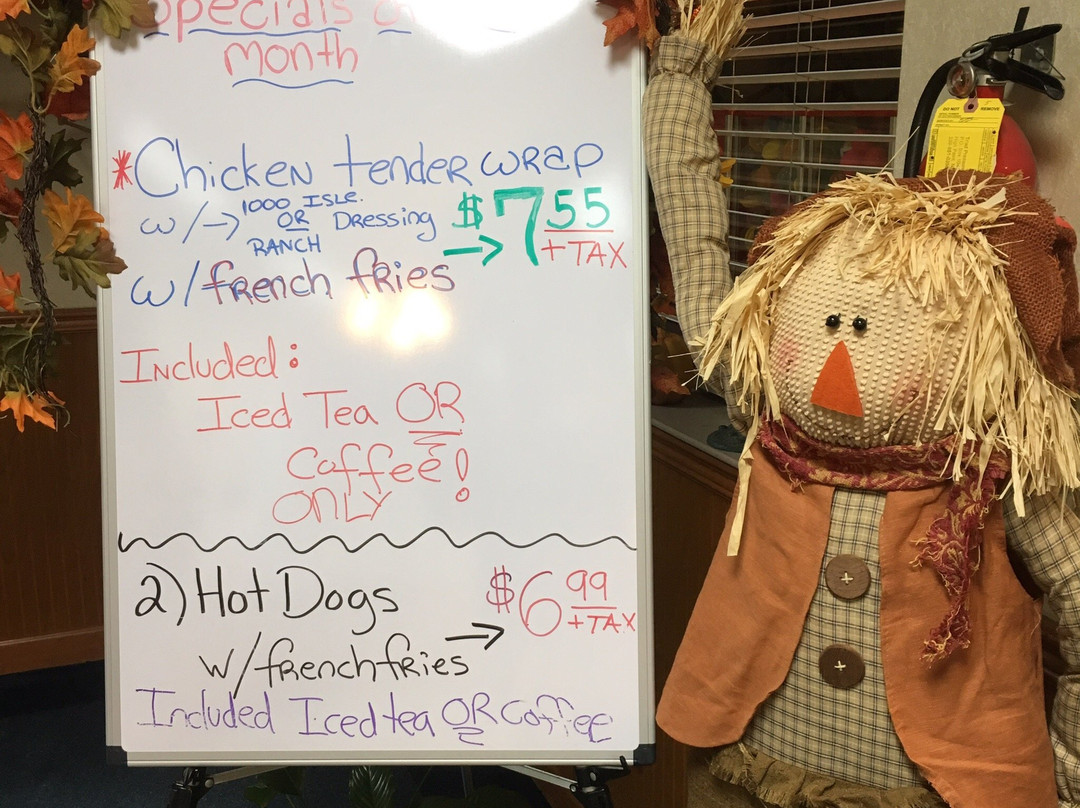 Specials
Month
*Chicken tender wrap
w/→ 1000 Isle.
OR Dressing
RANCH
$7.55
+TAX
w/french fries
Included:
Iced Tea OR
Coffee!
ONLY
2) Hot Dogs
$6.99
+TAX
w/french fries
Included Iced tea OR coffee